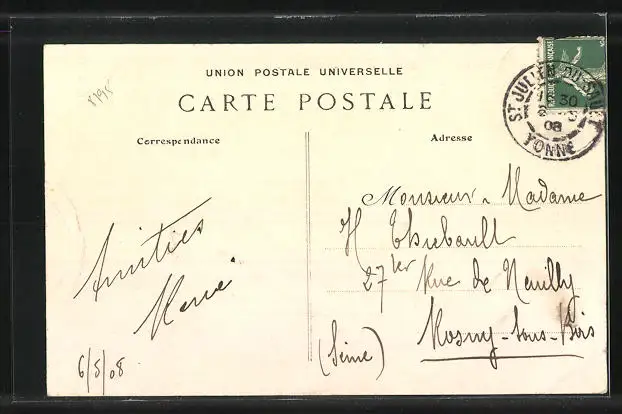 UNION POSTALE UNIVERSELLE
CARTE POSTALE
Correspondance
Adresse
ST JULIEN-DU-SAULT
30
08
YONNE
Monsieur Madame
H Thiebault
27 ter Rue de Neuilly
Rosny-sous-Bois
(Seine)
Amitiés
6/5/08